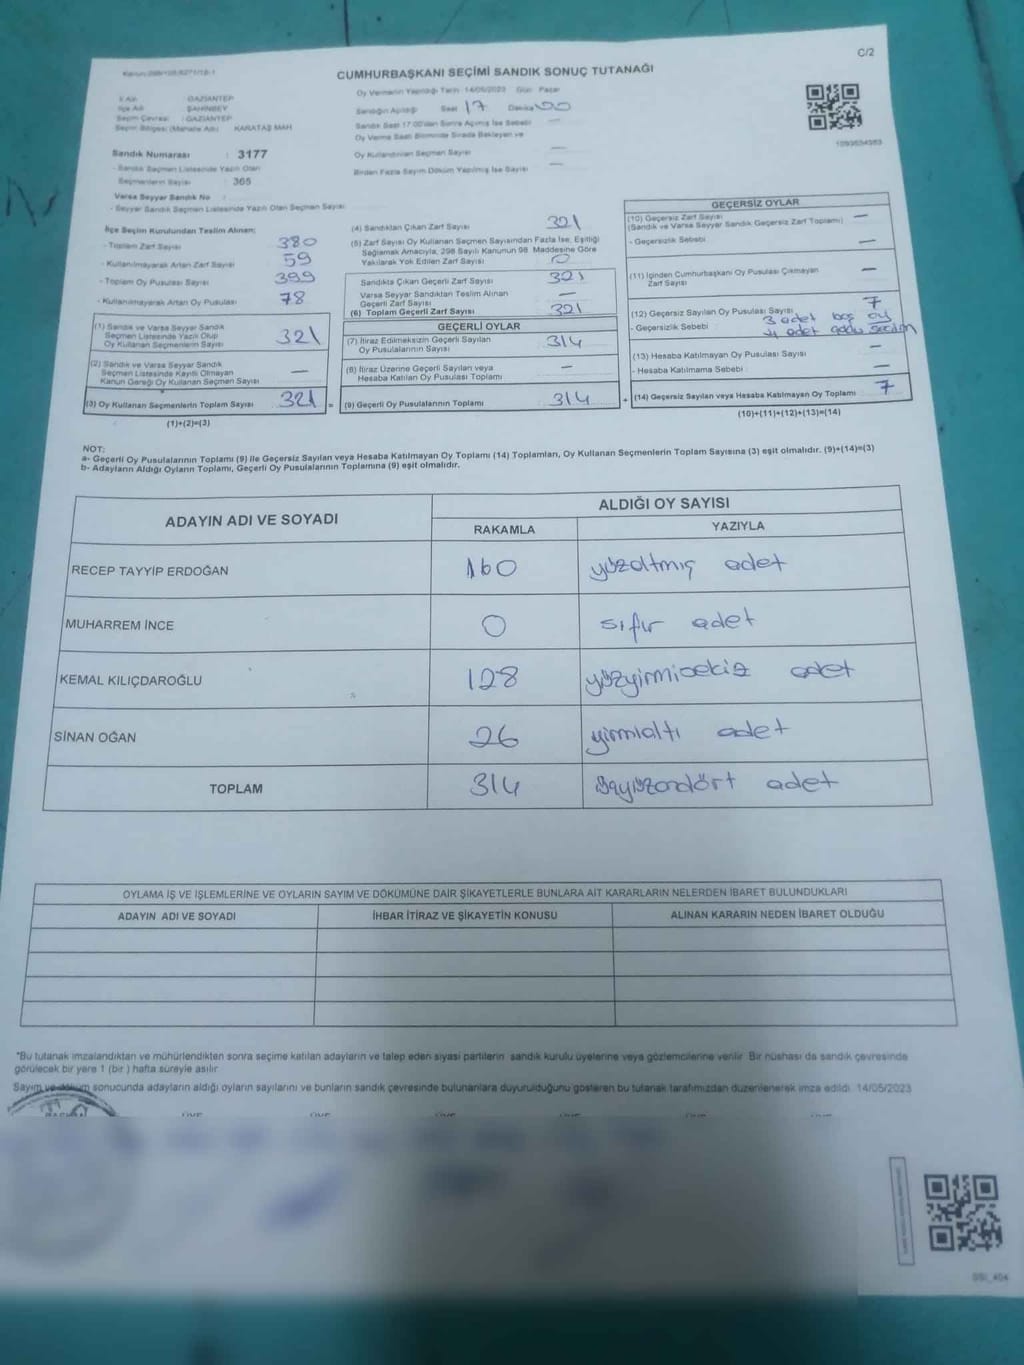 C/2
CUMHURBAŞKANI SEÇİMİ SANDIK SONUÇ TUTANAĞI
Oy Vermenin Yapıldığı Tarih 14/05/2023 Gün Pazar
İl Adı : GAZİANTEP
İlçe Adı : ŞAHİNBEY
Seçim Çevresi : GAZİANTEP
Seçim Bölgesi (Mahalle Adı) : KARATAŞ MAH
Sandığın Açıldığı Saat 17 Dakika 00
Sandık Saat 17.00'dan Sonra Açılmış İse Sebebi —
Oy Verme Saati Bitiminde Sırada Bekleyen ve
Oy Kullandırılan Seçmen Sayısı —
Birden Fazla Sayım Döküm Yapılmış İse Sayısı —
Sandık Numarası : 3177
- Sandık Seçmen Listesinde Yazılı Olan
Seçmenlerin Sayısı : 365
Varsa Seyyar Sandık No :
- Seyyar Sandık Seçmen Listesinde Yazılı Olan Seçmen Sayısı
İlçe Seçim Kurulundan Teslim Alınan;
- Toplam Zarf Sayısı 380
- Kullanılmayarak Artan Zarf Sayısı 59
- Toplam Oy Pusulası Sayısı 399
- Kullanılmayarak Artan Oy Pusulası 78
(1) Sandık ve Varsa Seyyar Sandık
Seçmen Listesinde Yazılı Olup
Oy Kullanan Seçmenlerin Sayısı 321
(2) Sandık ve Varsa Seyyar Sandık
Seçmen Listesinde Kayıtlı Olmayan
Kanun Gereği Oy Kullanan Seçmen Sayısı —
(3) Oy Kullanan Seçmenlerin Toplam Sayısı 321 =
(1)+(2)=(3)
(4) Sandıktan Çıkan Zarf Sayısı 321
(5) Zarf Sayısı Oy Kullanan Seçmen Sayısından Fazla İse, Eşitliği
Sağlamak Amacıyla, 298 Sayılı Kanunun 98. Maddesine Göre
Yakılarak Yok Edilen Zarf Sayısı 0
Sandıkta Çıkan Geçerli Zarf Sayısı 321
Varsa Seyyar Sandıktan Teslim Alınan
Geçerli Zarf Sayısı —
(6) Toplam Geçerli Zarf Sayısı 321
GEÇERLİ OYLAR
(7) İtiraz Edilmeksizin Geçerli Sayılan
Oy Pusulalarının Sayısı 314
(8) İtiraz Üzerine Geçerli Sayılan veya
Hesaba Katılan Oy Pusulası Toplamı —
(9) Geçerli Oy Pusulalarının Toplamı 314 +
GEÇERSİZ OYLAR
(10) Geçersiz Zarf Sayısı
(Sandık ve Varsa Seyyar Sandık Geçersiz Zarf Toplamı) —
- Geçersizlik Sebebi —
(11) İçinden Cumhurbaşkanı Oy Pusulası Çıkmayan
Zarf Sayısı —
(12) Geçersiz Sayılan Oy Pusulası Sayısı 7
- Geçersizlik Sebebi 3 adet boş oy
4 adet
(13) Hesaba Katılmayan Oy Pusulası Sayısı —
- Hesaba Katılmama Sebebi —
(14) Geçersiz Sayılan veya Hesaba Katılmayan Oy Toplamı 7
(10)+(11)+(12)+(13)=(14)
NOT:
a- Geçerli Oy Pusulalarının Toplamı (9) ile Geçersiz Sayılan veya Hesaba Katılmayan Oy Toplamı (14) Toplamları, Oy Kullanan Seçmenlerin Toplam Sayısına (3) eşit olmalıdır. (9)+(14)=(3)
b- Adayların Aldığı Oyların Toplamı, Geçerli Oy Pusulalarının Toplamına (9) eşit olmalıdır.
ADAYIN ADI VE SOYADI ALDIĞI OY SAYISI
RAKAMLA YAZIYLA
RECEP TAYYİP ERDOĞAN 160 yüzaltmış adet
MUHARREM İNCE 0 sıfır adet
KEMAL KILIÇDAROĞLU 128 yüzyirmisekiz adet
SİNAN OĞAN 26 yirmialtı adet
TOPLAM 314 üçyüzondört adet
OYLAMA İŞ VE İŞLEMLERİNE VE OYLARIN SAYIM VE DÖKÜMÜNE DAİR ŞİKAYETLERLE BUNLARA AİT KARARLARIN NELERDEN İBARET BULUNDUKLARI
ADAYIN ADI VE SOYADI İHBAR İTİRAZ VE ŞİKAYETİN KONUSU ALINAN KARARIN NEDEN İBARET OLDUĞU
*Bu tutanak imzalandıktan ve mühürlendikten sonra seçime katılan adayların ve talep eden siyasi partilerin sandık kurulu üyelerine veya gözlemcilerine verilir. Bir nüshası da sandık çevresinde
görülecek bir yere 1 (bir) hafta süreyle asılır.
Sayım ve döküm sonucunda adayların aldığı oyların sayılarını ve bunların sandık çevresinde bulunanlara duyurulduğunu gösteren bu tutanak tarafımızdan düzenlenerek imza edildi. 14/05/2023